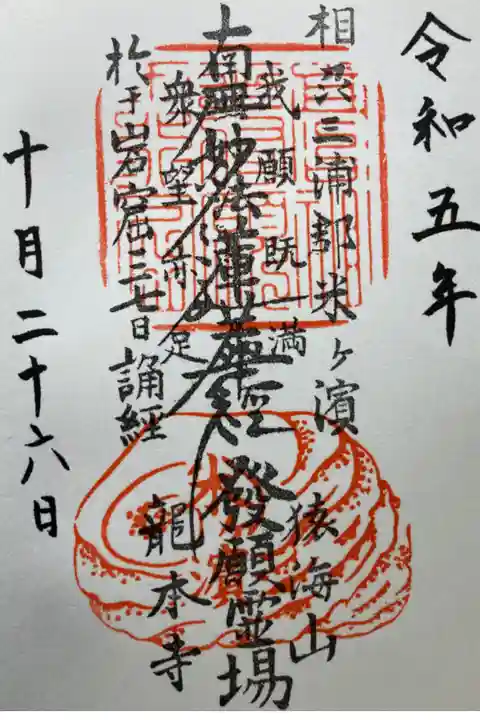 令和五年
相州三浦郡米ヶ濱
猿海山
我願既満
南無妙法蓮華經
發願霊場
衆望亦足
龍本寺
於于岩窟三七日誦経
十月二十六日